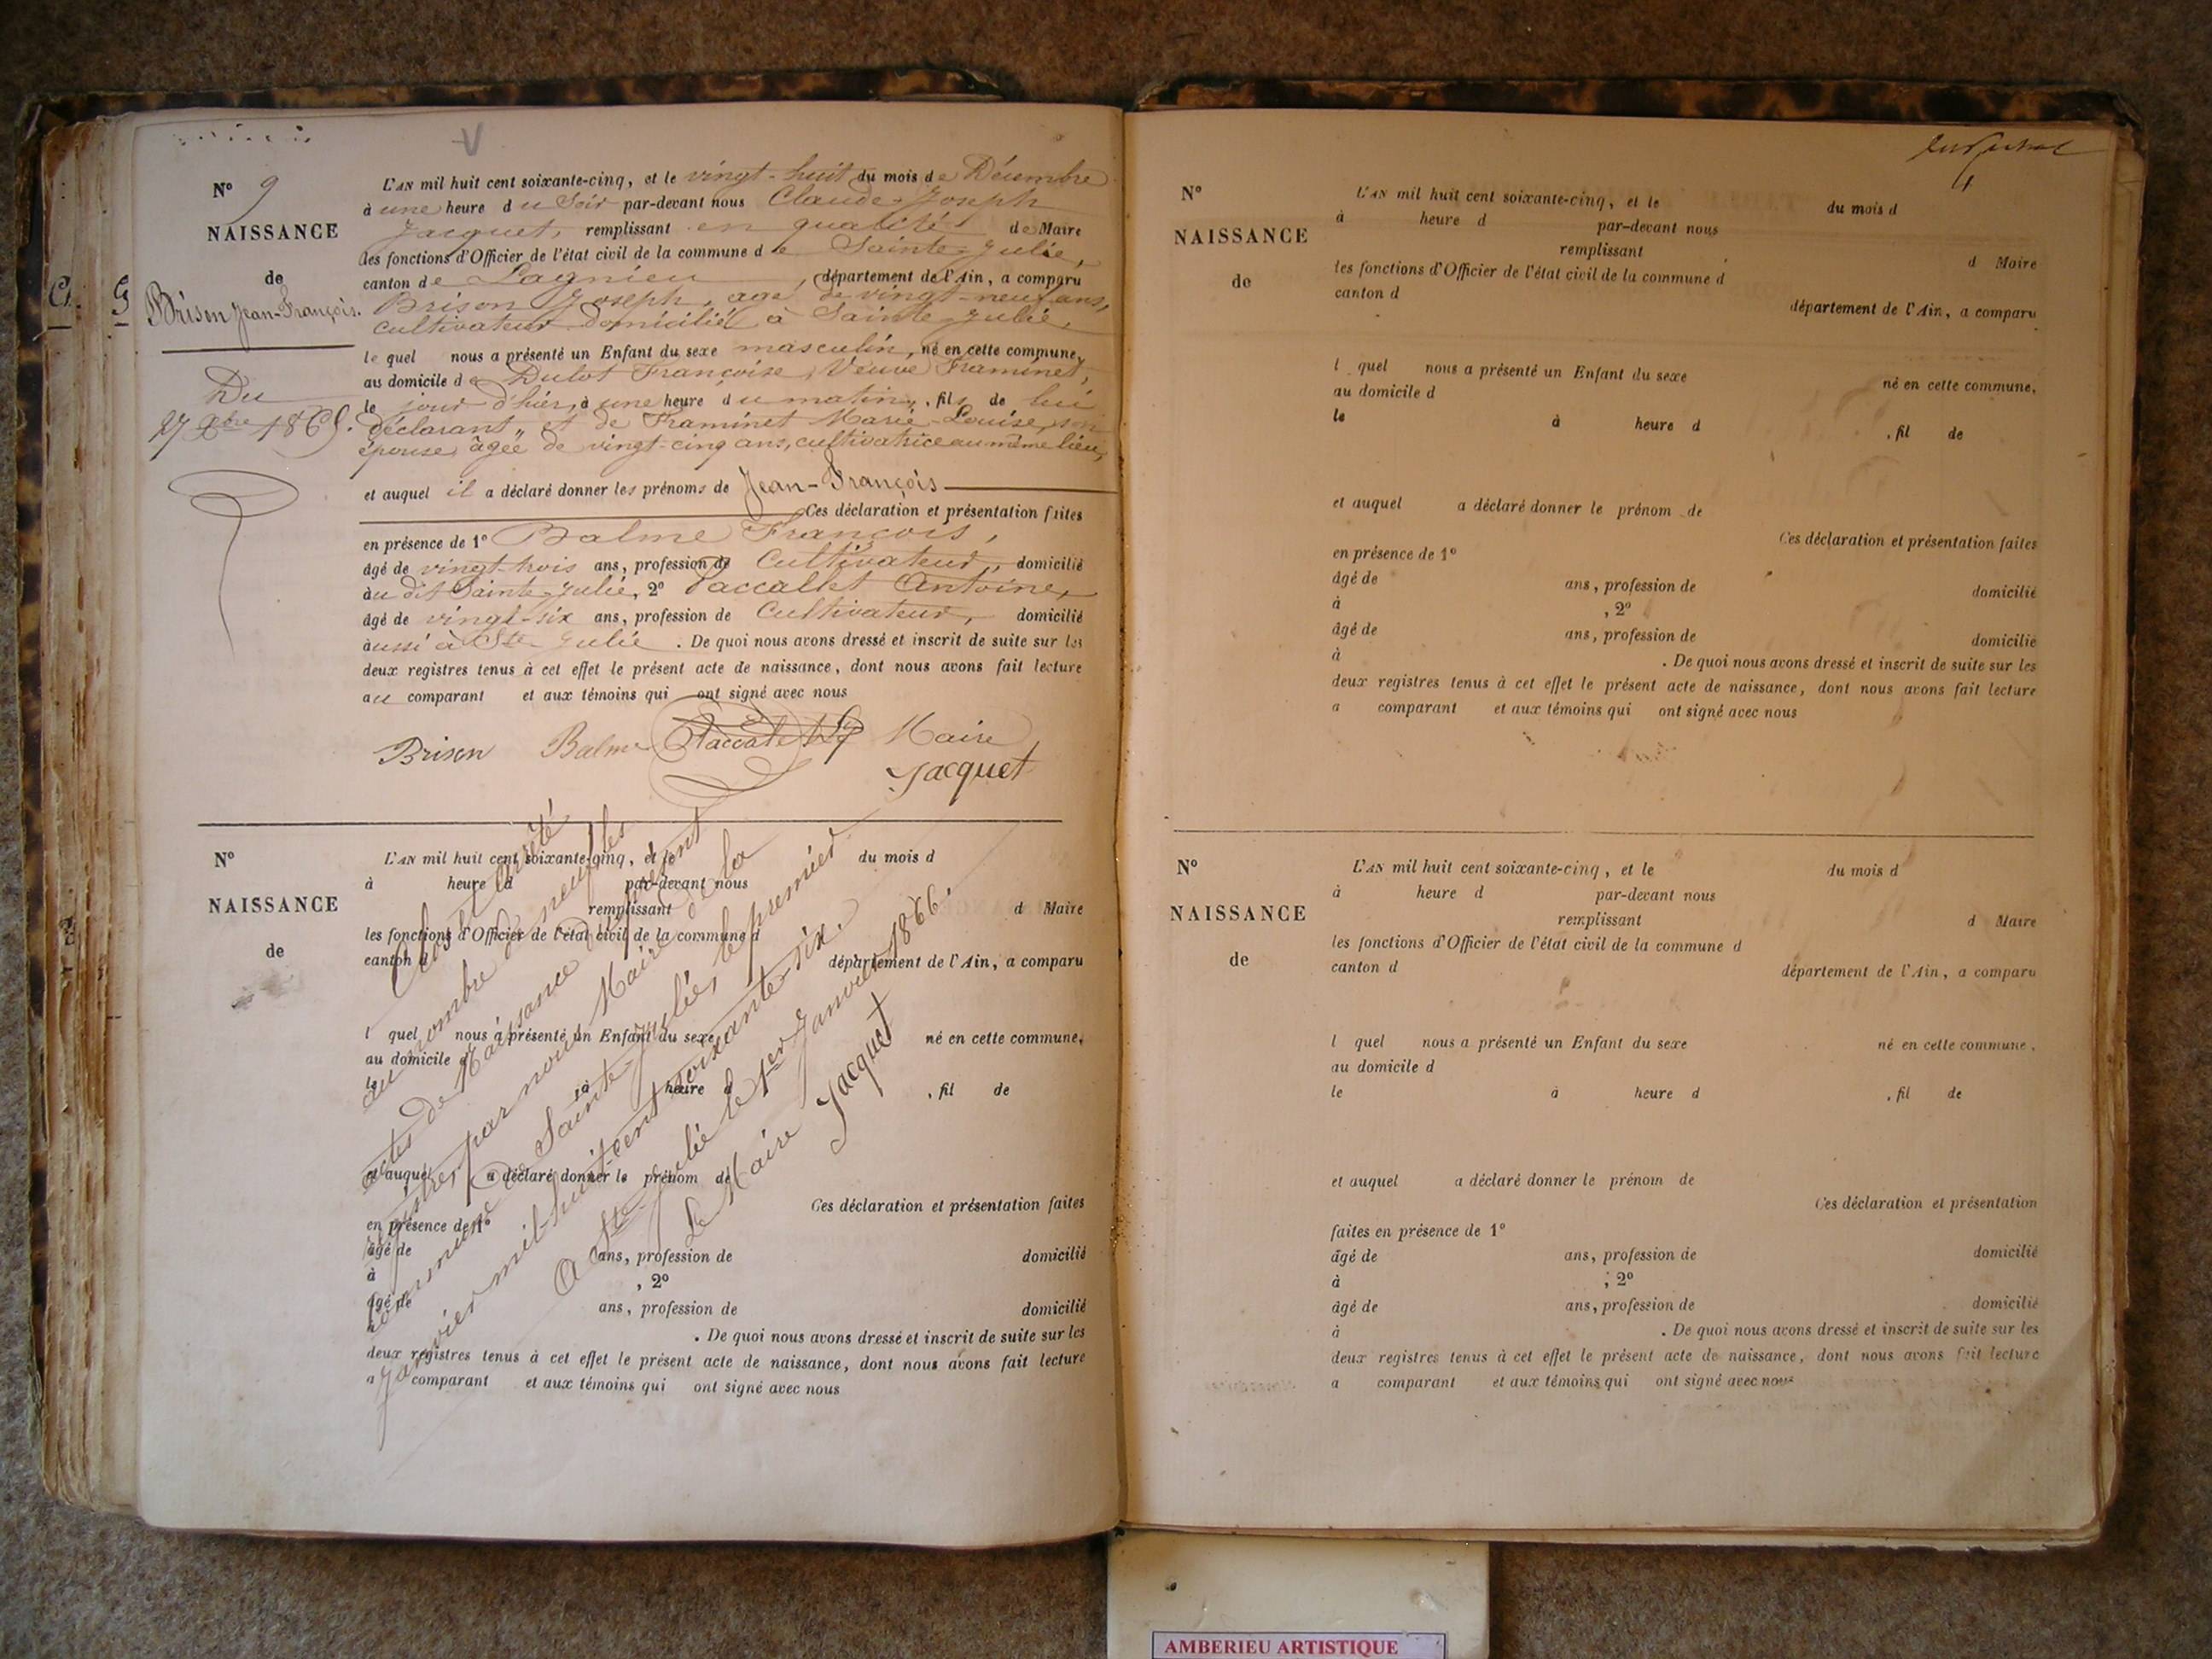 V
Nº 9
NAISSANCE
de
Brison Jean-François.
Du
27 Xbre 1865.
Ct. G
L'AN mil huit cent soixante-cinq, et le vingt-huit du mois de Décembre
à une heure du soir par-devant nous Claude-Joseph
Jacquet, remplissant en qualité de Maire
les fonctions d'Officier de l'état civil de la commune de Sainte-Julie,
canton de Lagnieu, département de l'Ain, a comparu
Brison Joseph, agé de vingt-neuf ans,
cultivateur domicilié à Sainte-Julie,
lequel nous a présenté un Enfant du sexe masculin, né en cette commune,
au domicile de Dulot Françoise, Veuve Framinet,
le jour d'hier, à une heure du matin, fils de lui
déclarant, et de Framinet Marie-Louise, son
épouse, âgée de vingt-cinq ans, cultivatrice au même lieu,
et auquel il a déclaré donner les prénoms de Jean-François
Ces déclaration et présentation faites
en présence de 1º Balme François,
âgé de vingt-trois ans, profession de Cultivateur, domicilié
au dit Sainte-Julie, 2º Paccallet Antoine,
âgé de vingt-six ans, profession de Cultivateur, domicilié
aussi à Ste Julie. De quoi nous avons dressé et inscrit de suite sur les
deux registres tenus à cet effet le présent acte de naissance, dont nous avons fait lecture
au comparant et aux témoins qui ont signé avec nous
Brison Balme Maire
Jacquet
Nº
NAISSANCE
de
L'AN mil huit cent soixante-cinq, et le du mois d
à heure d par-devant nous
remplissant d Maire
les fonctions d'Officier de l'état civil de la commune d
canton d département de l'Ain, a comparu
l quel nous a présenté un Enfant du sexe né en cette commune,
au domicile d
le à heure d , fil de
et auquel a déclaré donner le prénom de
Ces déclaration et présentation faites
en présence de 1º
âgé de ans, profession de domicilié
à , 2º
âgé de ans, profession de domicilié
à . De quoi nous avons dressé et inscrit de suite sur les
deux registres tenus à cet effet le présent acte de naissance, dont nous avons fait lecture
a comparant et aux témoins qui ont signé avec nous
Clos et arrêté
au nombre de neuf les
actes de Naissance du présent
registre, par nous Maire de la
commune de Sainte-Julie, le premier
Janvier mil-huit-cent soixante-six.
A Ste Julie le 1er Janvier 1866.
Le Maire Jacquet
Nº
NAISSANCE
de
L'AN mil huit cent soixante-cinq, et le du mois d
à heure d par-devant nous
remplissant d Maire
les fonctions d'Officier de l'état civil de la commune d
canton d département de l'Ain, a comparu
l quel nous a présenté un Enfant du sexe né en cette commune,
au domicile d
le à heure d , fil de
et auquel a déclaré donner le prénom de
Ces déclaration et présentation faites
en présence de 1º
âgé de ans, profession de domicilié
à , 2º
âgé de ans, profession de domicilié
à . De quoi nous avons dressé et inscrit de suite sur les
deux registres tenus à cet effet le présent acte de naissance, dont nous avons fait lecture
a comparant et aux témoins qui ont signé avec nous
Nº
NAISSANCE
de
L'AN mil huit cent soixante-cinq, et le du mois d
à heure d par-devant nous
remplissant d Maire
les fonctions d'Officier de l'état civil de la commune d
canton d département de l'Ain, a comparu
l quel nous a présenté un Enfant du sexe né en cette commune,
au domicile d
le à heure d , fil de
et auquel a déclaré donner le prénom de
Ces déclaration et présentation
faites en présence de 1º
âgé de ans, profession de domicilié
à , 2º
âgé de ans, profession de domicilié
à . De quoi nous avons dressé et inscrit de suite sur les
deux registres tenus à cet effet le présent acte de naissance, dont nous avons fait lecture
a comparant et aux témoins qui ont signé avec nous
AMBERIEU ARTISTIQUE